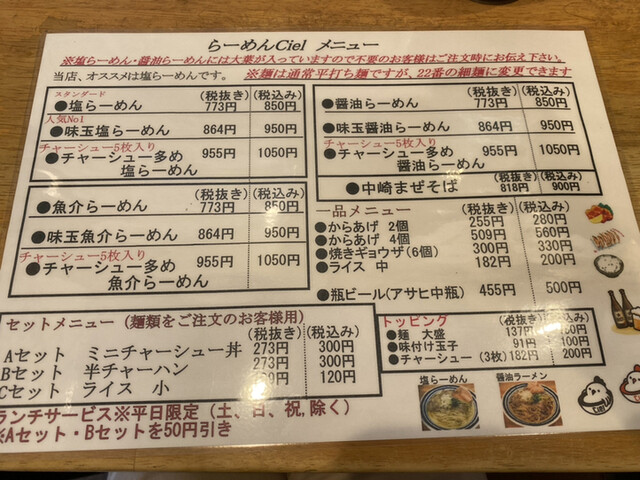 らーめんCiel メニュー
※塩らーめん・醤油らーめんには大葉が入っていますので不要のお客様はご注文時にお伝え下さい。
当店、オススメは塩らーめんです。 ※麺は通常平打ち麺ですが、22番の細麺に変更できます
スタンダード (税抜き) (税込み)
●塩らーめん 773円 850円
人気No1
●味玉塩らーめん 864円 950円
チャーシュー5枚入り
●チャーシュー多め 955円 1050円
塩らーめん
(税抜き) (税込み)
●魚介らーめん 773円 850円
●味玉魚介らーめん 864円 950円
チャーシュー5枚入り
●チャーシュー多め 955円 1050円
魚介らーめん
(税抜き) (税込み)
●醤油らーめん 773円 850円
●味玉醤油らーめん 864円 950円
チャーシュー5枚入り
●チャーシュー多め 955円 1050円
醤油らーめん
(税抜き) (税込み)
●中崎まぜそば 818円 900円
一品メニュー (税抜き) (税込み)
●からあげ 2個 255円 280円
●からあげ 4個 509円 560円
●焼きギョウザ(6個) 300円 330円
●ライス 中 182円 200円
●瓶ビール(アサヒ中瓶) 455円 500円
セットメニュー (麺類をご注文のお客様用)
(税抜き) (税込み)
Aセット ミニチャーシュー丼 273円 300円
Bセット 半チャーハン 273円 300円
Cセット ライス 小 120円
ランチサービス※平日限定 (土、日、祝,除く)
※Aセット・Bセットを50円引き
トッピング (税抜き) (税込み)
●麺 大盛 137円
●味付け玉子 91円 100円
●チャーシュー (3枚) 182円 200円
塩らーめん 醤油ラーメン
Ciel